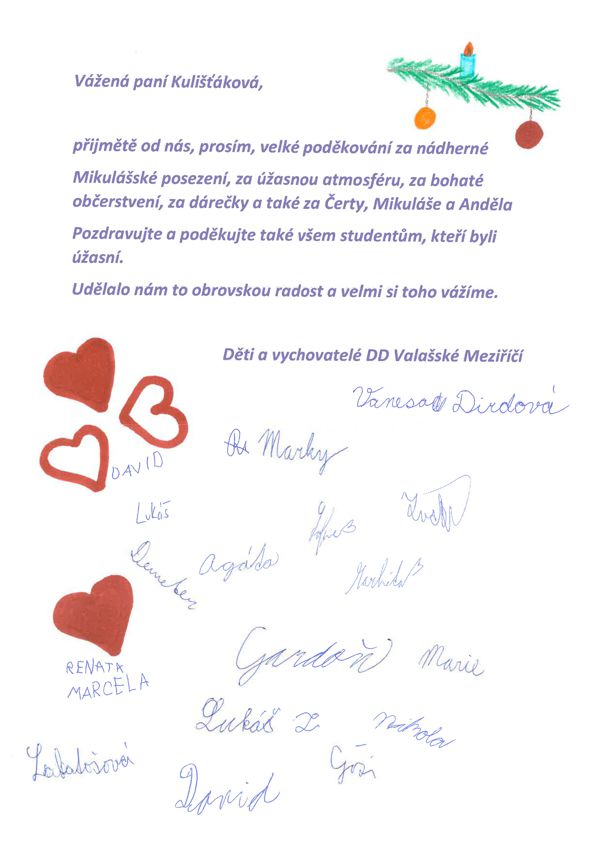 Vážená paní Kulišťáková,
přijmětě od nás, prosím, velké poděkování za nádherné
Mikulášské posezení, za úžasnou atmosféru, za bohaté
občerstvení, za dárečky a také za Čerty, Mikuláše a Anděla
Pozdravujte a poděkujte také všem studentům, kteří byli
úžasní.
Udělalo nám to obrovskou radost a velmi si toho vážíme.
Děti a vychovatelé DD Valašské Meziříčí
Vanesa Dirdová
Marky
DAVID
Lukáš
Demeter
Agáta
Gardoň
Marie
RENATA
MARCELA
Lukáš L
Nikola
Lakatošová
Goši
David